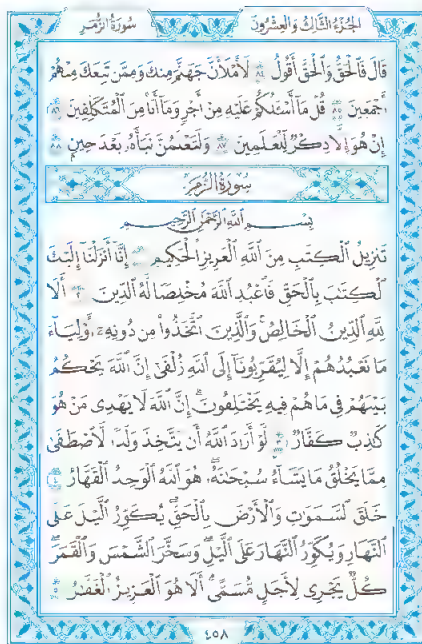 الجزء الثالث والعشرون سورة الزمر
قَالَ فَالْحَقُّ وَالْحَقَّ أَقُولُ ٨٤ لَأَمْلَأَنَّ جَهَنَّمَ مِنكَ وَمِمَّن تَبِعَكَ مِنْهُمْ
أَجْمَعِينَ ٨٥ قُلْ مَا أَسْئَلُكُمْ عَلَيْهِ مِنْ أَجْرٍ وَمَا أَنَا مِنَ الْمُتَكَلِّفِينَ ٨٦
إِنْ هُوَ إِلَّا ذِكْرٌ لِّلْعَٰلَمِينَ ٨٧ وَلَتَعْلَمُنَّ نَبَأَهُ بَعْدَ حِينٍ ٨٨
سورة الزمر
بِسْمِ اللَّهِ الرَّحْمَٰنِ الرَّحِيمِ
تَنزِيلُ الْكِتَٰبِ مِنَ اللَّهِ الْعَزِيزِ الْحَكِيمِ ١ إِنَّا أَنزَلْنَا إِلَيْكَ
الْكِتَٰبَ بِالْحَقِّ فَاعْبُدِ اللَّهَ مُخْلِصًا لَّهُ الدِّينَ ٢ أَلَا
لِلَّهِ الدِّينُ الْخَالِصُ وَالَّذِينَ اتَّخَذُوا مِن دُونِهِ أَوْلِيَاءَ
مَا نَعْبُدُهُمْ إِلَّا لِيُقَرِّبُونَا إِلَى اللَّهِ زُلْفَىٰ إِنَّ اللَّهَ يَحْكُمُ
بَيْنَهُمْ فِي مَا هُمْ فِيهِ يَخْتَلِفُونَ إِنَّ اللَّهَ لَا يَهْدِي مَنْ هُوَ
كَٰذِبٌ كَفَّارٌ ٣ لَّوْ أَرَادَ اللَّهُ أَن يَتَّخِذَ وَلَدًا لَّاصْطَفَىٰ
مِمَّا يَخْلُقُ مَا يَشَاءُ سُبْحَٰنَهُ هُوَ اللَّهُ الْوَٰحِدُ الْقَهَّارُ ٤
خَلَقَ السَّمَٰوَٰتِ وَالْأَرْضَ بِالْحَقِّ يُكَوِّرُ اللَّيْلَ عَلَى
النَّهَارِ وَيُكَوِّرُ النَّهَارَ عَلَى اللَّيْلِ وَسَخَّرَ الشَّمْسَ وَالْقَمَرَ
كُلٌّ يَجْرِي لِأَجَلٍ مُّسَمًّى أَلَا هُوَ الْعَزِيزُ الْغَفَّٰرُ ٥
٤٥٨